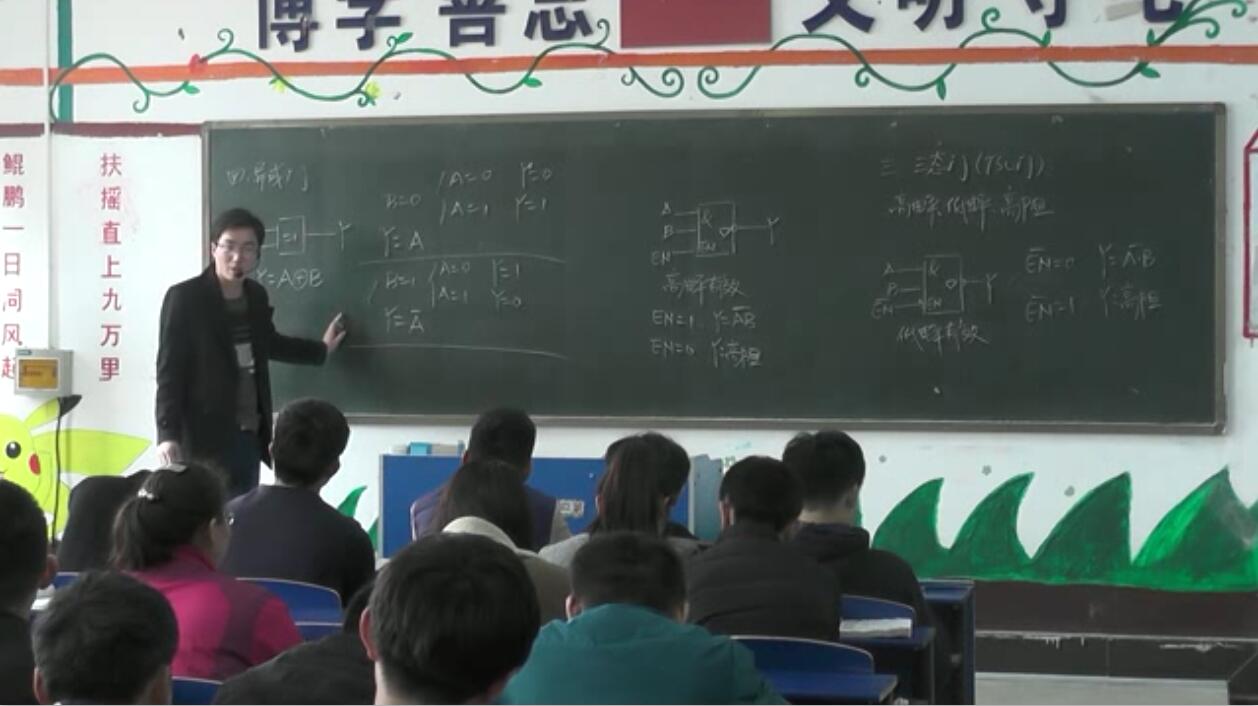 博学 善思 文明 守礼
鲲鹏一日同风起
扶摇直上九万里
四.异或门
=1 Y
Y=A⊕B
B=0 A=0 Y=0
A=1 Y=1
Y=A
B=1 A=0 Y=1
A=1 Y=0
Y=Ā
A
B & Y
EN EN
高电平有效
EN=1 Y=A̅B̅
EN=0 Y:高阻
三 三态门(TSL门)
高电平,低电平,高阻
A
B & Y
E̅N̅ EN
低电平有效
E̅N̅=0 Y=A̅·̅B̅
E̅N̅=1 Y:高阻